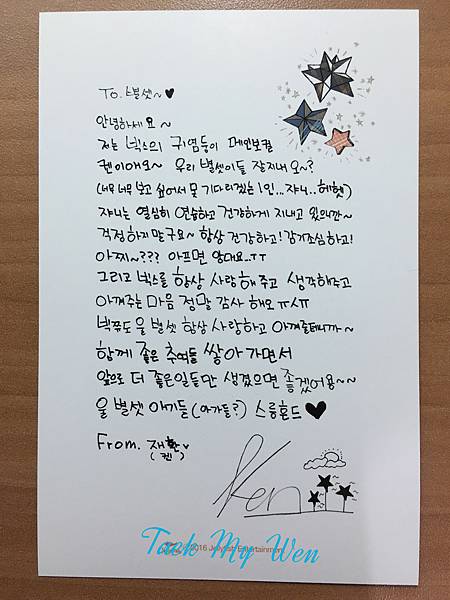 To. 별셋~♥
안녕하세요~
저는 빅스의 귀염둥이 메인보컬
켄이애오~ 우리 별셋이들 잘지내오~?
(너무너무 보고 싶어서 못 기다리겠는 1인... 쟈니, 허헷)
쟈니는 열심히 연습하고 건강하게 지내고 있으니깐~
걱정하지말구요~ 항상 건강하고! 감기조심하고!
아찌~??? 아프면 앙대요..ㅜㅜ
그리고 빅스를 항상 사랑해주고 생각해주고
아껴주는 마음 정말 감사해오 ㅠㅅㅠ
빅쮸도 울 별셋 항상 사랑하고 아껴줄테니까~
함께 좋은 추억들 쌓아가면서
앞으로 더 좋은일들만 생겼으면 좋겠어용~~
울 별셋 애기들(아가들?) 스릉흔드 ♥
From. 재환♥
(켄)
Ken
2016 Jellyfish Entertainment
Taek My Wen